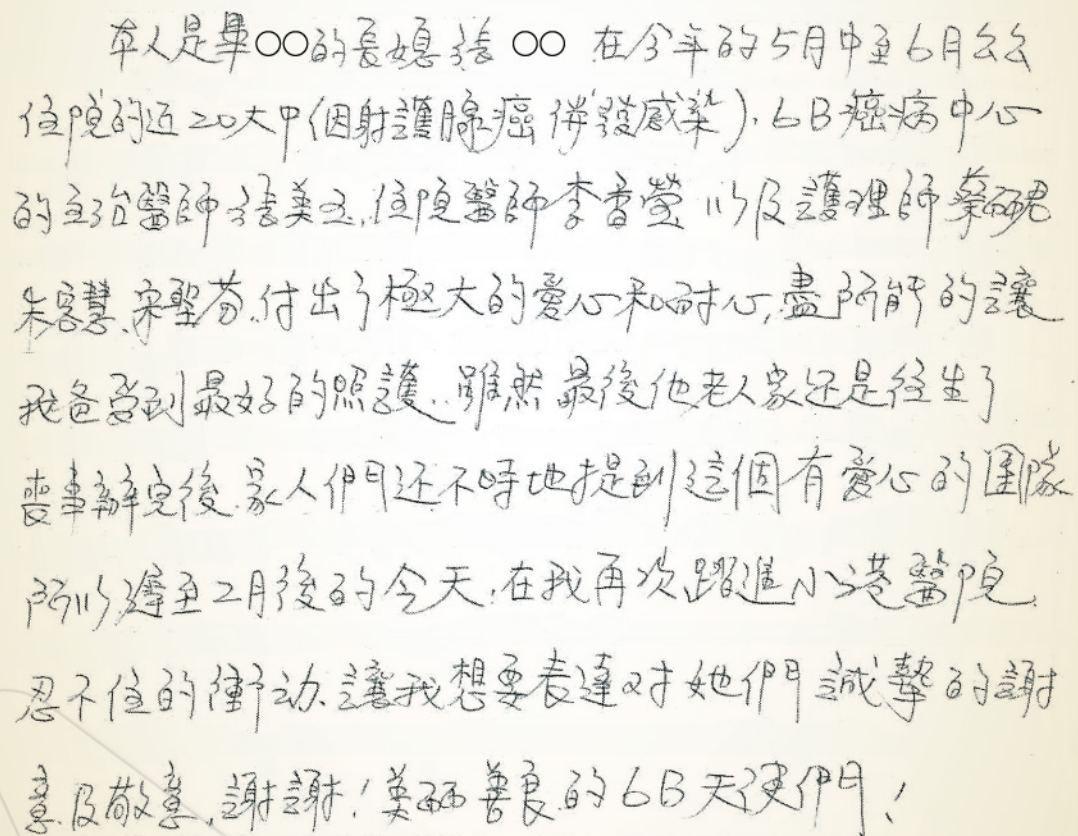 本人是畢○○的長媳張○○ 在今年的5月中至6月公公
住院的近20天中(因射護腺癌併發感染). 6B癌病中心
的主治醫師張美玉.住院醫師李香瑩 以及護理師蔡硯
朱容慧.宋聖芬.付出了極大的愛心和耐心,盡所能的讓
我爸受到最好的照護.雖然最後他老人家还是往生了
喪事辦完後.家人們还不時地提到這個有愛心的團隊
所以遲至2月後的今天.在我再次踏進小港醫院.
忍不住的衝动.讓我想要表達对她們誠摯的謝
意及敬意.謝謝!美丽善良的6B天使們!